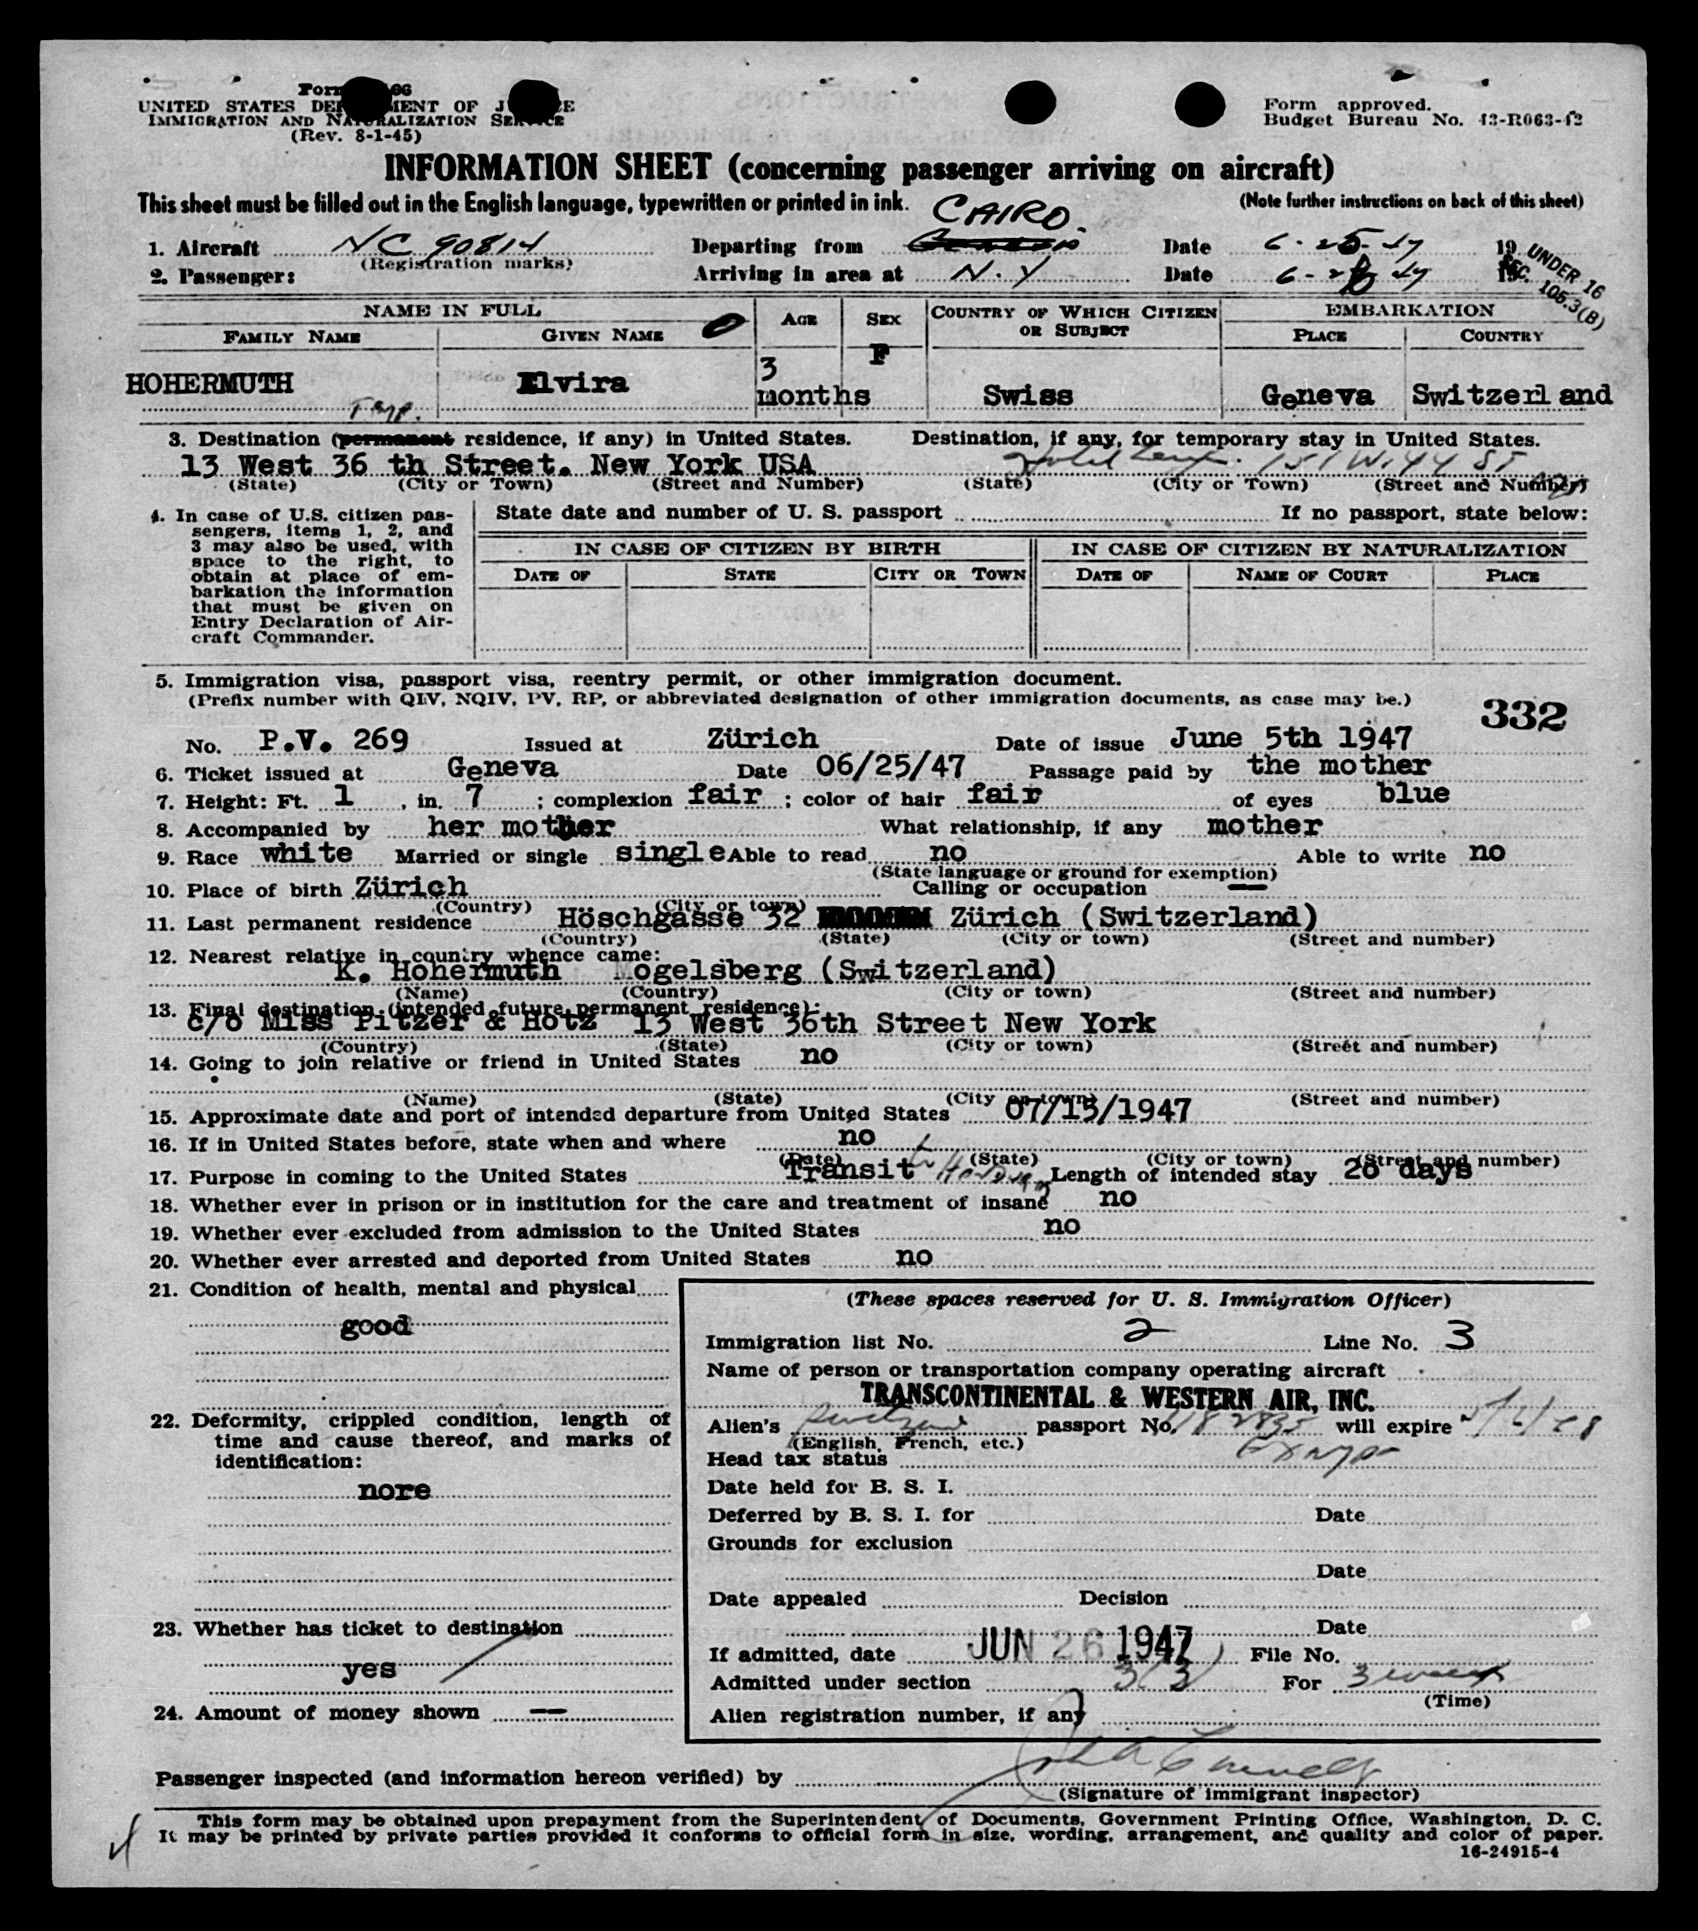 UNITED STATES OF
IMMIGRATION AND NATURALIZATION SERVICE
(Rev. 8-1-45)
Form approved.
Budget Bureau No. 43-R063-42
INFORMATION SHEET (concerning passenger arriving on aircraft)
This sheet must be filled out in the English language, typewritten or printed in ink.
(Note further instructions on back of this sheet)
CAIRO
1. Aircraft NC 90814 Departing from Date 6-25-47 19
(Registration marks)
2. Passenger: Arriving in area at N.Y Date 6-26-47 19
UNDER 16
SEC. 105.3(B)
NAME IN FULL AGE SEX COUNTRY OF WHICH CITIZEN OR SUBJECT EMBARKATION
FAMILY NAME GIVEN NAME PLACE COUNTRY
HOHERMUTH Elvira 3 months F Swiss Geneva Switzerland
Temp.
3. Destination (permanent residence, if any) in United States. Destination, if any, for temporary stay in United States.
13 West 36 th Street. New York USA Hotel 151 W. 44 ST
(State) (City or Town) (Street and Number) (State) (City or Town) (Street and Number)
4. In case of U.S. citizen pas-
sengers, items 1, 2, and
3 may also be used, with
space to the right, to
obtain at place of em-
barkation the information
that must be given on
Entry Declaration of Air-
craft Commander.
State date and number of U. S. passport If no passport, state below:
IN CASE OF CITIZEN BY BIRTH IN CASE OF CITIZEN BY NATURALIZATION
DATE OF STATE CITY OR TOWN DATE OF NAME OF COURT PLACE
5. Immigration visa, passport visa, reentry permit, or other immigration document.
(Prefix number with QIV, NQIV, PV, RP, or abbreviated designation of other immigration documents, as case may be.)
332
No. P.V. 269 Issued at Zürich Date of issue June 5th 1947
6. Ticket issued at Geneva Date 06/25/47 Passage paid by the mother
7. Height: Ft. 1, in. 7; complexion fair; color of hair fair of eyes blue
8. Accompanied by her mother What relationship, if any mother
9. Race white Married or single single Able to read no Able to write no
(State language or ground for exemption)
10. Place of birth Zürich Calling or occupation —
(Country) (City or town)
11. Last permanent residence Höschgasse 32 Zürich (Switzerland)
(Country) (State) (City or town) (Street and number)
12. Nearest relative in country whence came:
K. Hohermuth Mogelsberg (Switzerland)
(Name) (Country) (City or town) (Street and number)
13. Final destination (intended future permanent residence):
c/o Miss Pitzer & Hotz 13 West 36th Street New York
(Country) (State) (City or town) (Street and number)
14. Going to join relative or friend in United States no
(Name) (State) (City or town) (Street and number)
15. Approximate date and port of intended departure from United States 07/15/1947
16. If in United States before, state when and where no
(Date) (State) (City or town) (Street and number)
17. Purpose in coming to the United States Transit to Honduras Length of intended stay 20 days
18. Whether ever in prison or in institution for the care and treatment of insane no
19. Whether ever excluded from admission to the United States no
20. Whether ever arrested and deported from United States no
21. Condition of health, mental and physical
good
22. Deformity, crippled condition, length of
time and cause thereof, and marks of
identification:
nore
23. Whether has ticket to destination
yes
24. Amount of money shown —
(These spaces reserved for U. S. Immigration Officer)
Immigration list No. 2 Line No. 3
Name of person or transportation company operating aircraft
TRANSCONTINENTAL & WESTERN AIR, INC.
Alien's passport No. will expire
(English, French, etc.)
Head tax status
Date held for B. S. I.
Deferred by B. S. I. for Date
Grounds for exclusion
Date
Date appealed Decision
Date
If admitted, date JUN 26 1947 File No.
Admitted under section 3(3) For 3 weeks
(Time)
Alien registration number, if any
Passenger inspected (and information hereon verified) by
(Signature of immigrant inspector)
This form may be obtained upon prepayment from the Superintendent of Documents, Government Printing Office, Washington, D. C.
It may be printed by private parties provided it conforms to official form in size, wording, arrangement, and quality and color of paper.
16-24915-4